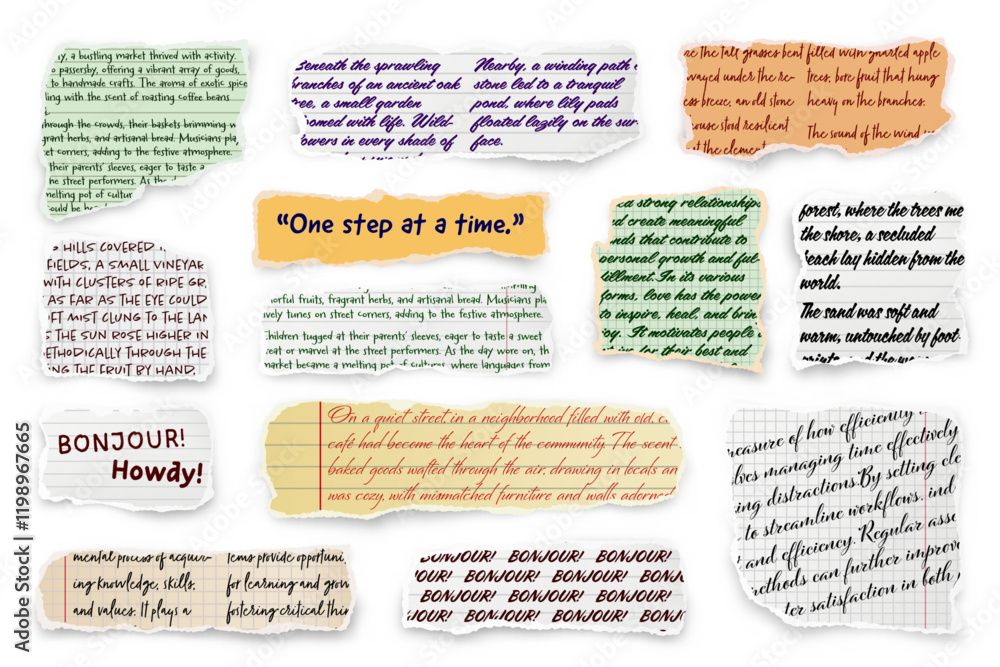 y, a bustling market thrived with activity.
o passersby, offering a vibrant array of goods,
to handmade crafts. The aroma of exotic spice
ling with the scent of roasting coffee beans
hrough the crowds, their baskets brimming w
grant herbs, and artisanal bread. Musicians pla
et corners, adding to the festive atmosphere.
their parents' sleeves, eager to taste a
he street performers. As the day
melting pot of cultur
ould be
Beneath the sprawling
branches of an ancient oak
tree, a small garden
oomed with life. Wild-
owers in every shade of
Nearby, a winding path
stone led to a tranquil
pond, where lily pads
floated lazily on the sur-
face.
e the tall grasses bent
wayed under the re-
ess breeze, an old stone
house stood resilient
st the element
filled with gnarled apple
trees, bore fruit that hung
heavy on the branches.
The sound of the wind
"One step at a time."
HILLS COVERED
FIELDS, A SMALL VINEYAR
WITH CLUSTERS OF RIPE GR
AS FAR AS THE EYE COULD
FT MIST CLUNG TO THE LAN
S THE SUN ROSE HIGHER IN
ETHODICALLY THROUGH THE
ING THE FRUIT BY HAND.
lorful fruits, fragrant herbs, and artisanal bread. Musicians pla
ively tunes on street corners, adding to the festive atmosphere.
Children tugged at their parents' sleeves, eager to taste a sweet
reat or marvel at the street performers. As the day wore on, th
market became a melting pot of cultures, where languages from
a strong relationships
d create meaningful
nds that contribute to
personal growth and ful
fillment. In its various
forms, love has the power
to inspire, heal, and brin
oy. It motivates people
for their best and
forest, where the trees me
the shore, a secluded
beach lay hidden from the
world.
The sand was soft and
warm, untouched by foot-
prints, and the
BONJOUR!
Howdy!
On a quiet street, in a neighborhood filled with old, c
café had become the heart of the community. The scent
baked goods wafted through the air, drawing in locals an
was cozy, with mismatched furniture and walls adorned
easure of how efficiency
lves managing time effectively
ing distractions. By setting cle
to streamline workflows, ind
and efficiency. Regular asse
ethods can further improve
ter satisfaction in both
mental process of acquir-
ing knowledge, skills,
and values. It plays a
tems provide opportuni
for learning and grow
fostering critical thin
BONJOUR! BONJOUR! BONJOUR!
JOUR! BONJOUR! BONJOUR! BONJ
BONJOUR! BONJOUR! BONJOUR!
JOUR! BONJOUR! BONJOUR! BONJ
Adobe Stock | #1198967665